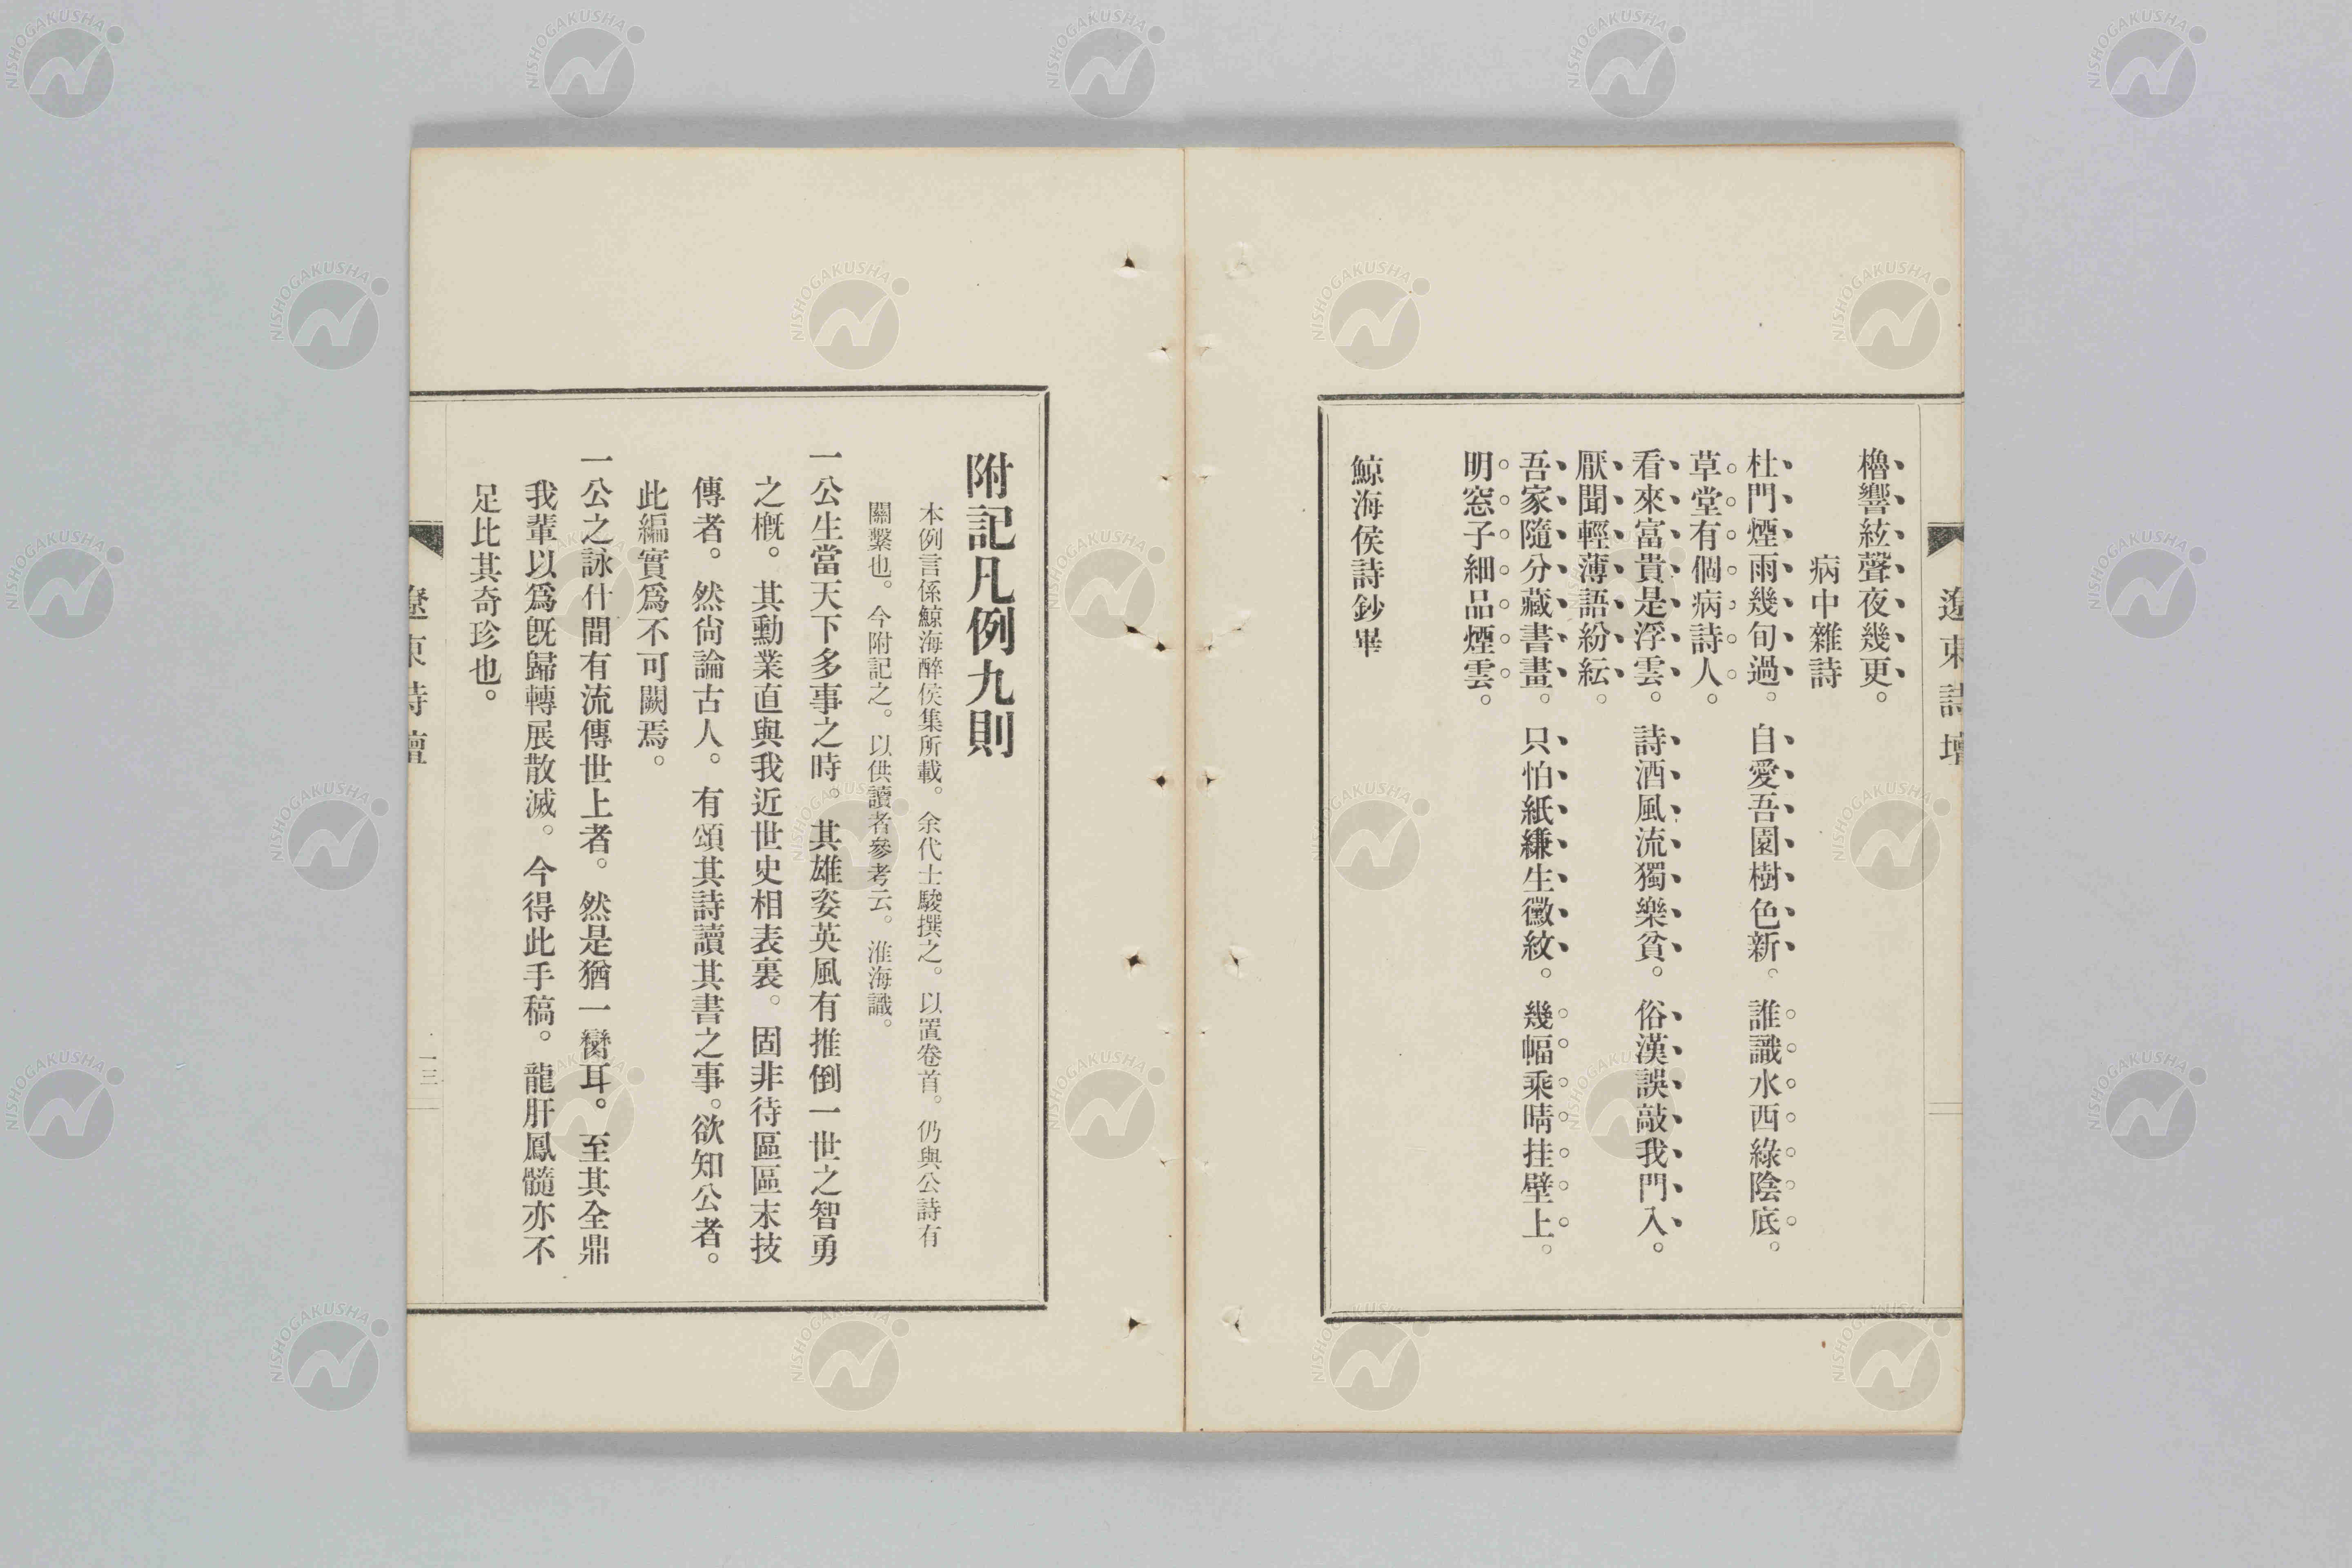 遼東詩壇
櫓響絃聲夜幾更。
病中雜詩
杜門煙雨幾旬過。自愛吾園樹色新。誰識水西綠陰底。
草堂有個病詩人。
看來富貴是浮雲。詩酒風流獨樂貧。俗漢誤敲我門入。
厭聞輕薄語紛紜。
吾家隨分藏書畫。只怕紙縑生黴紋。幾幅乘晴挂壁上。
明窓子細品煙雲。
鯨海侯詩鈔畢
附記凡例九則
本例言係鯨海醉侯集所載。余代士駿撰之。以置卷首。仍與公詩有
關繫也。今附記之。以供讀者參考云。淮海識。
一公生當天下多事之時。其雄姿英風有推倒一世之智勇
之槪。其勳業直與我近世史相表裏。固非待區區末技
傳者。然尙論古人。有頌其詩讀其書之事。欲知公者。
此編實爲不可闕焉。
一公之詠什間有流傳世上者。然是猶一臠耳。至其全鼎
我輩以爲旣歸轉展散滅。今得此手稿。龍肝鳳髓亦不
足比其奇珍也。
遼東詩壇
一三
NISHOGAKUSHA